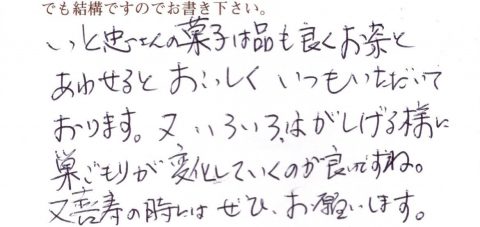 でも結構ですのでお書き下さい。
いつと忠さんの菓子は品も良くお茶と
あわせると おいしく いつもいただいて
おります。又 いろいろ、はがしげる様に
巣ごもりが 変化していくのが良いですね。
又喜寿の時には ぜひ、お願いします。